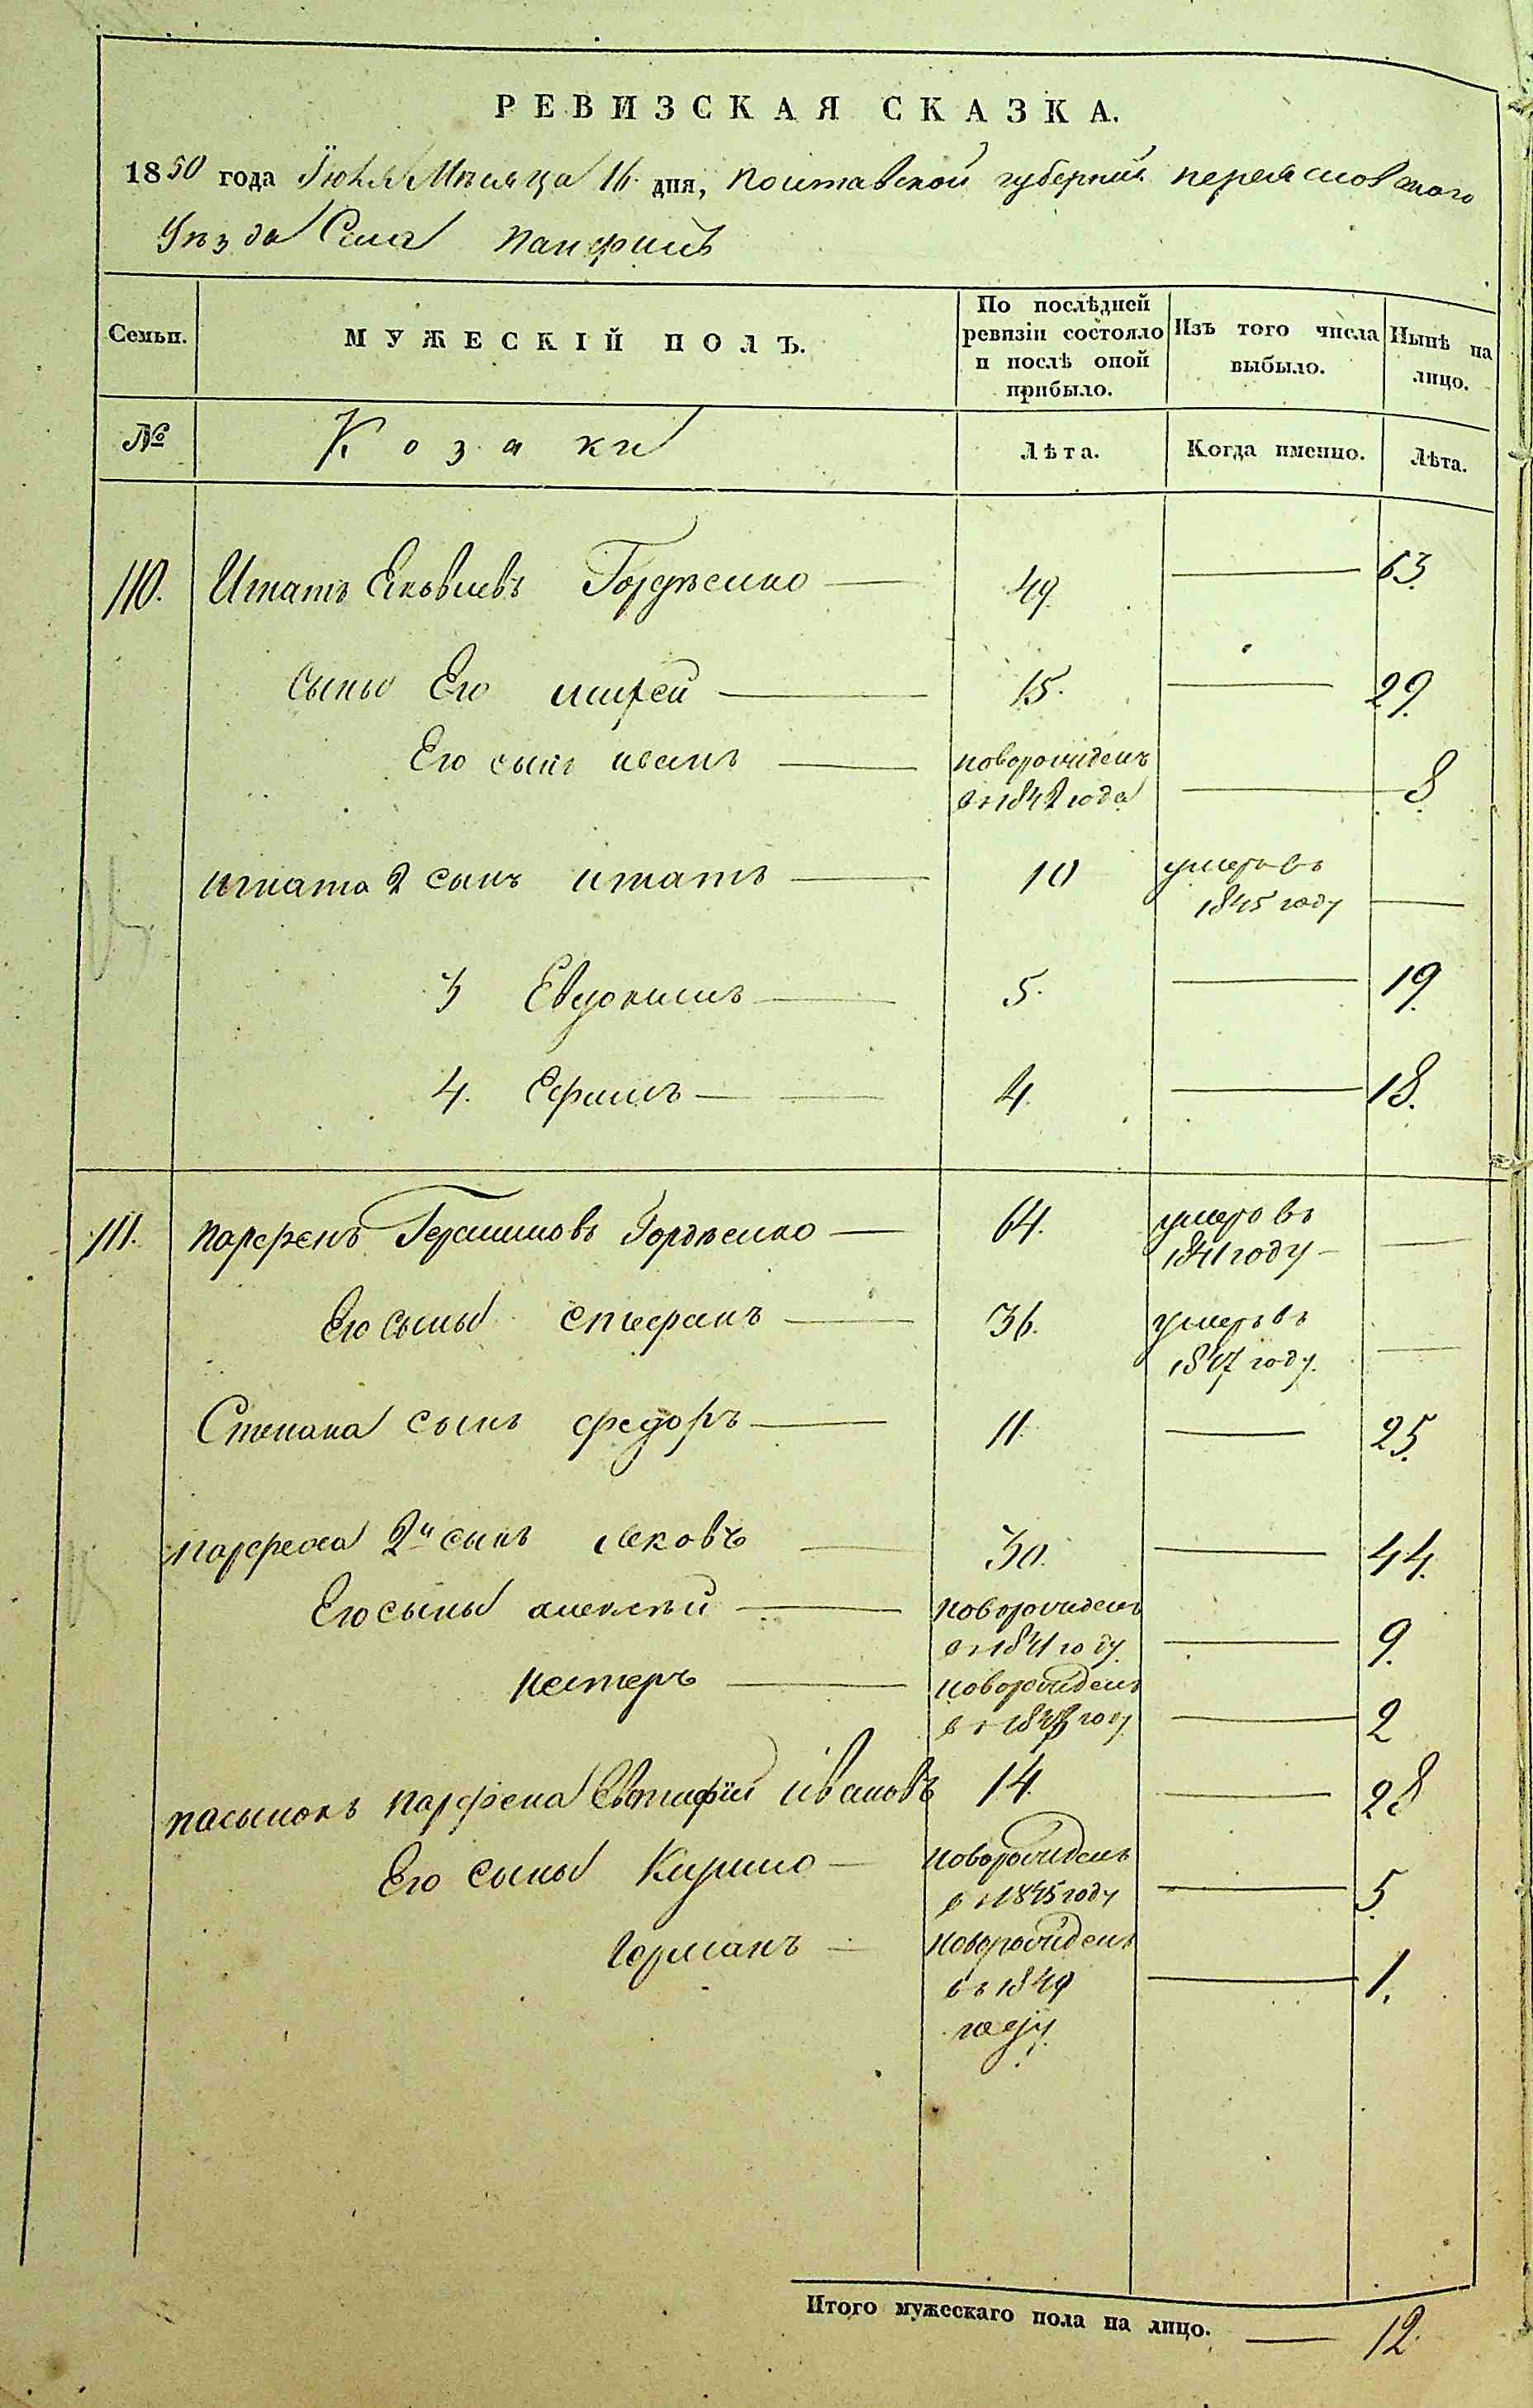 РЕВИЗСКАЯ СКАЗКА.
1850 года Їюля Мѣсяца 16 дня, полтавской губерніи переяславского
Уѣзда Села панфилъ
Семьи. МУЖЕСКІЙ ПОЛЪ. По послѣдней ревизіи состояло и послѣ оной прибыло. Изъ того числа выбыло. Нынѣ на лицо.
№ Козаки Лѣта. Когда именно. Лѣта.
110. Игнатъ Яковлевъ Гордѣенко — 49. — 63.
сыны Его — 15. — 29.
Его сынъ иванъ — новорожденъ въ 1842 года — 8
игната 2 сынъ игнатъ — 10 умеръ въ 1845 году —
3 Евдокимъ — 5. — 19.
4. Ефимъ — 4. — 18.
111. парфенъ Герасимовъ Гордѣенко — 64. умеръ въ 1841 году —
Его сыны стефанъ — 36. умеръ въ 1847 году. —
Степана сынъ федоръ — 11. — 25.
парфена 2й сынъ яковъ — 30. — 44.
Его сыны алексѣй — новорожденъ въ 1841 году — 9.
нестеръ — новорожденъ въ 1848 году — 2
пасынокъ парфена Евстафій ивановъ 14. — 28
Его сыны Кирило — новорожденъ въ 1845 году — 5.
Германъ — новорожденъ въ 1849 году. — 1.
Итого мужескаго пола на лицо. — 12.